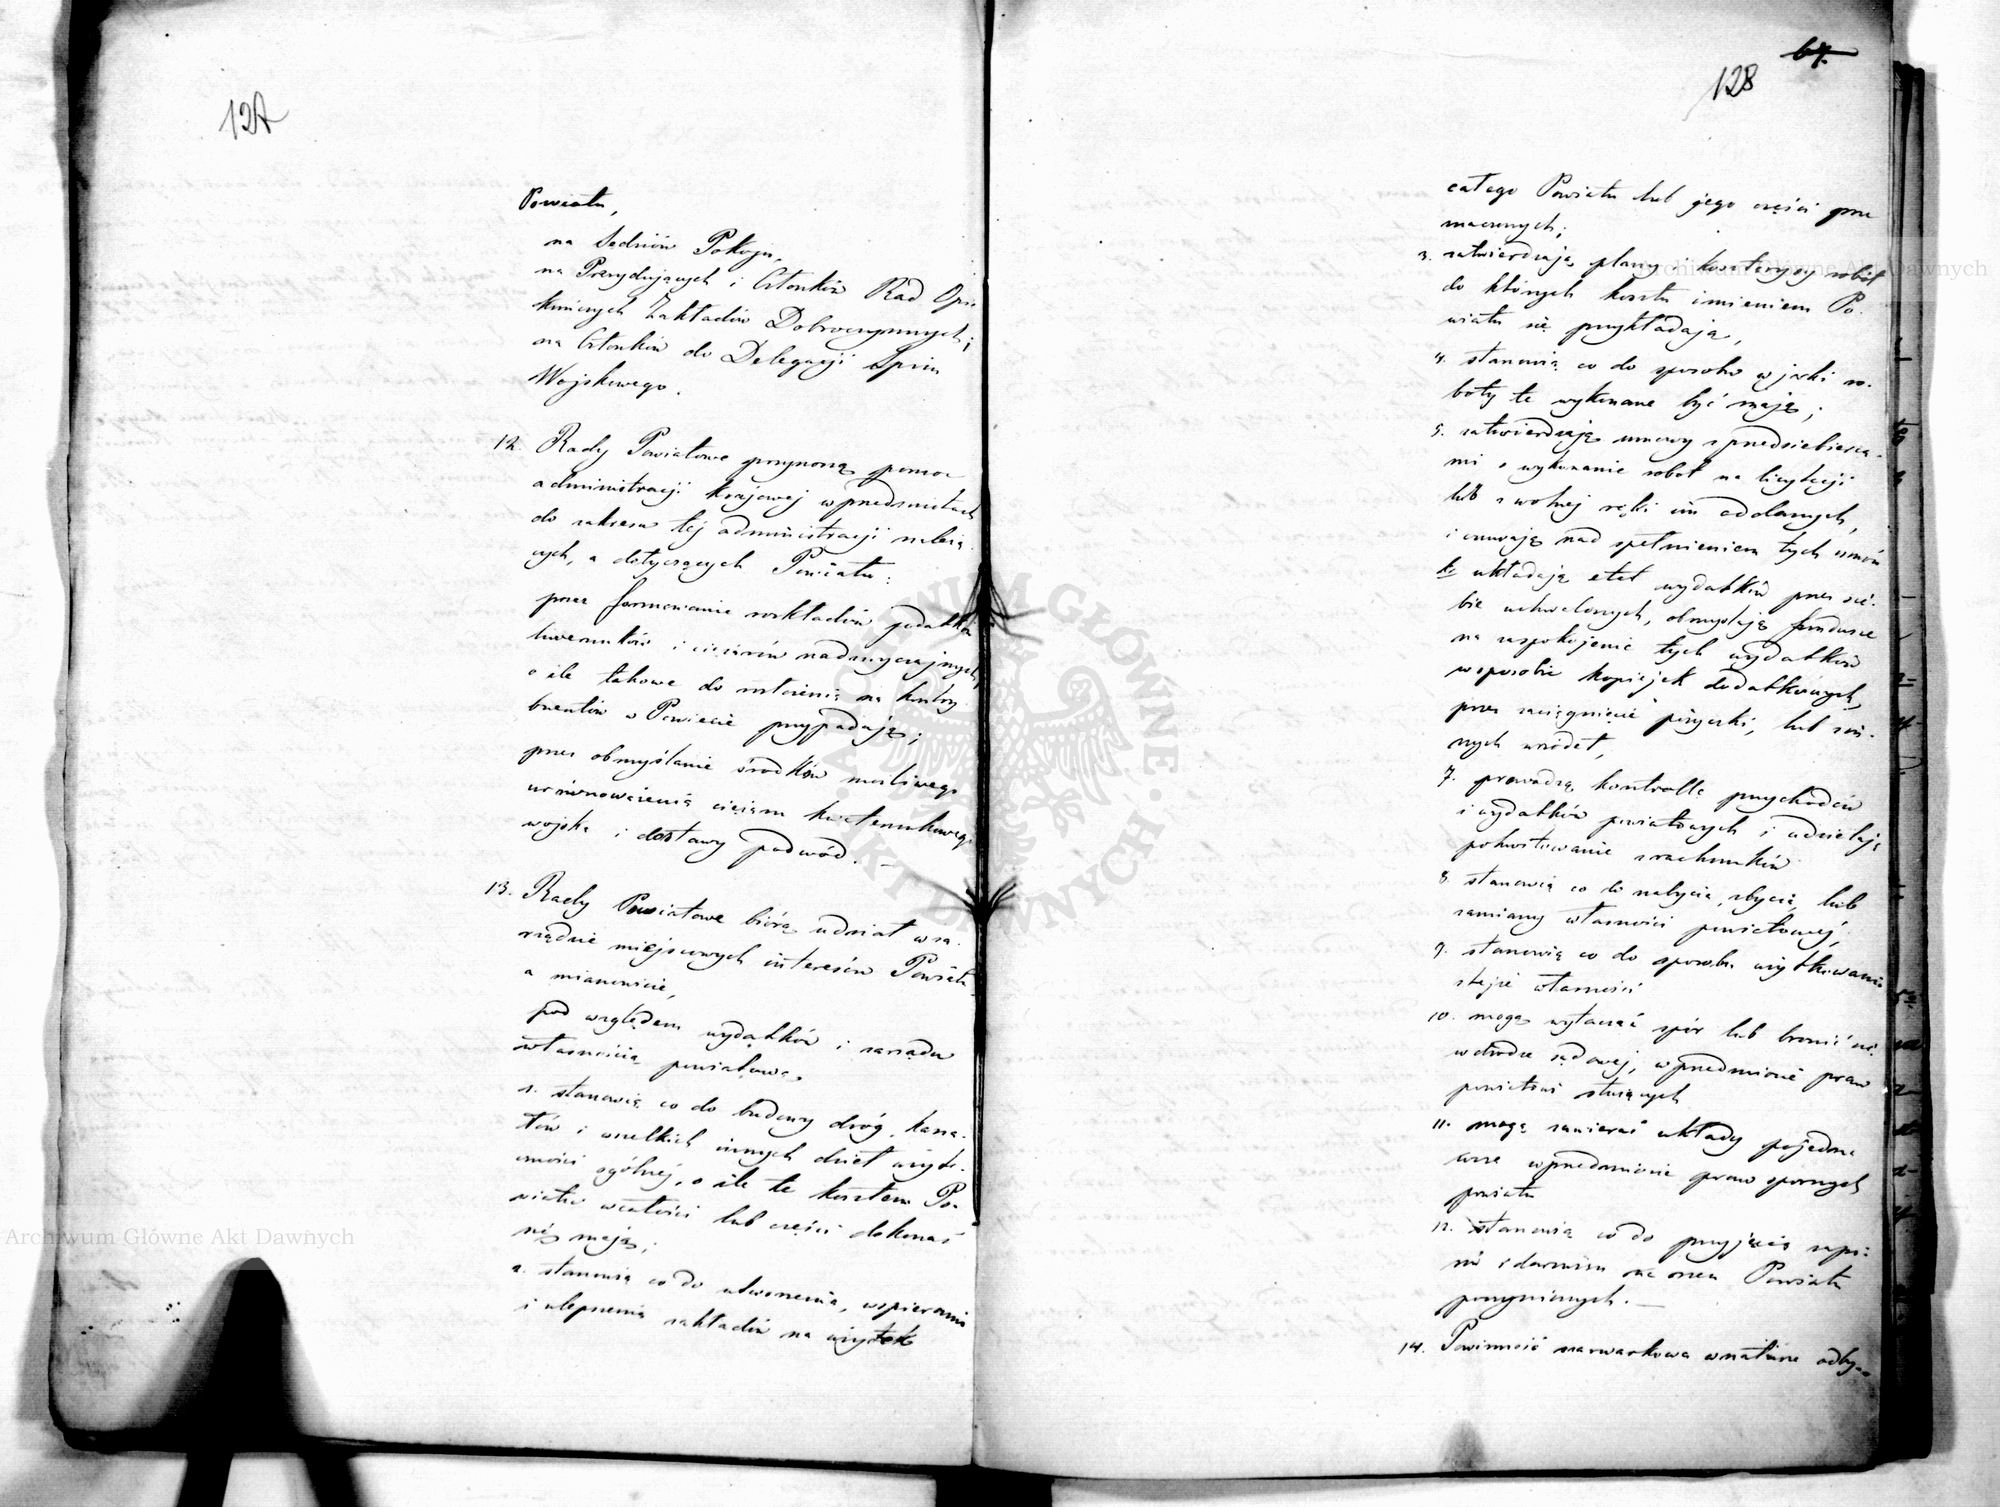 127
Powiatu,
na Sędziów Pokoju,
na Prezydujących i Członków Rad Opie
kuńczych Zakładów Dobroczynnych;
na Członków do Delegacji Spisu
Wojskowego.
12. Rady Powiatowe przynoszą pomoc
administracji krajowej w przedmiotach
do zakresu tej administracji należą
cych, a dotyczących Powiatu:
przez formowanie rozkładów podatków
liwerunków i ciężarów nadzwyczajnych,
o ile takowe do rozłożenia na kontry
buentów w Powiecie przypadają;
przez obmyślanie środków możliwego
zrównoważenia ciężaru kwaterunkowego
wojska i dostawy podwód. —
13. Rady Powiatowe biorą udział w za-
rządzie miejscowych interesów Powiatu
a mianowicie,
pod względem wydatków i zarządu
własnością powiatową,
1. stanowią co do budowy dróg, kana-
łów i wszelkich innych dzieł użyte-
czności ogólnej, o ile te kosztem Po-
wiatu w całości lub części dokonać
się mają;
2. stanowią co do utworzenia, wspierania
i ulepszenia zakładów na użytek
67.
128
całego Powiatu lub jego części prze
znaczonych;
3. zatwierdzają plany i kosztorysy robót
do których kosztu imieniem Po-
wiatu się przykładają,
4. stanowią co do sposobu w jaki ro-
boty te wykonane być mają;
5. zatwierdzają umowy z przedsiebierca-
mi o wykonanie robót na licytacji
lub z wolnej ręki im oddanych,
i czuwają nad spełnieniem tych umów
6. układają etat wydatków przez sie-
bie uchwalonych, obmyślają fundusze
na zaspokojenie tych wydatków
w sposobie kopiejek dodatkowych,
przez zaciągnięcie pożyczki, lub z in-
nych źródeł,
7. prowadzą kontrollę przychodów
i wydatków powiatowych i udzielają
pokwitowanie z rachunków
8. stanowią co do nabycia, zbycia, lub
zamiany własności powiatowej,
9. stanowią co do sposobu użytkowania
z tejże własności
10. mogą wytaczać spór lub bronić się
w drodze sądowej, w przedmiocie praw
powiatowi służących
11. mogą zawierać układy pojedna
wcze w przedmiocie praw spornych
powiatu
12. stanowią co do przyjęcia zapi-
sów i darowizn na rzecz Powiatu
poczynionych. —
14. Powinność szarwarkowa w naturze odby-
Archiwum Główne Akt Dawnych
Archiwum Główne Akt Dawnych
ARCHIWUM GŁÓWNE AKT DAWNYCH